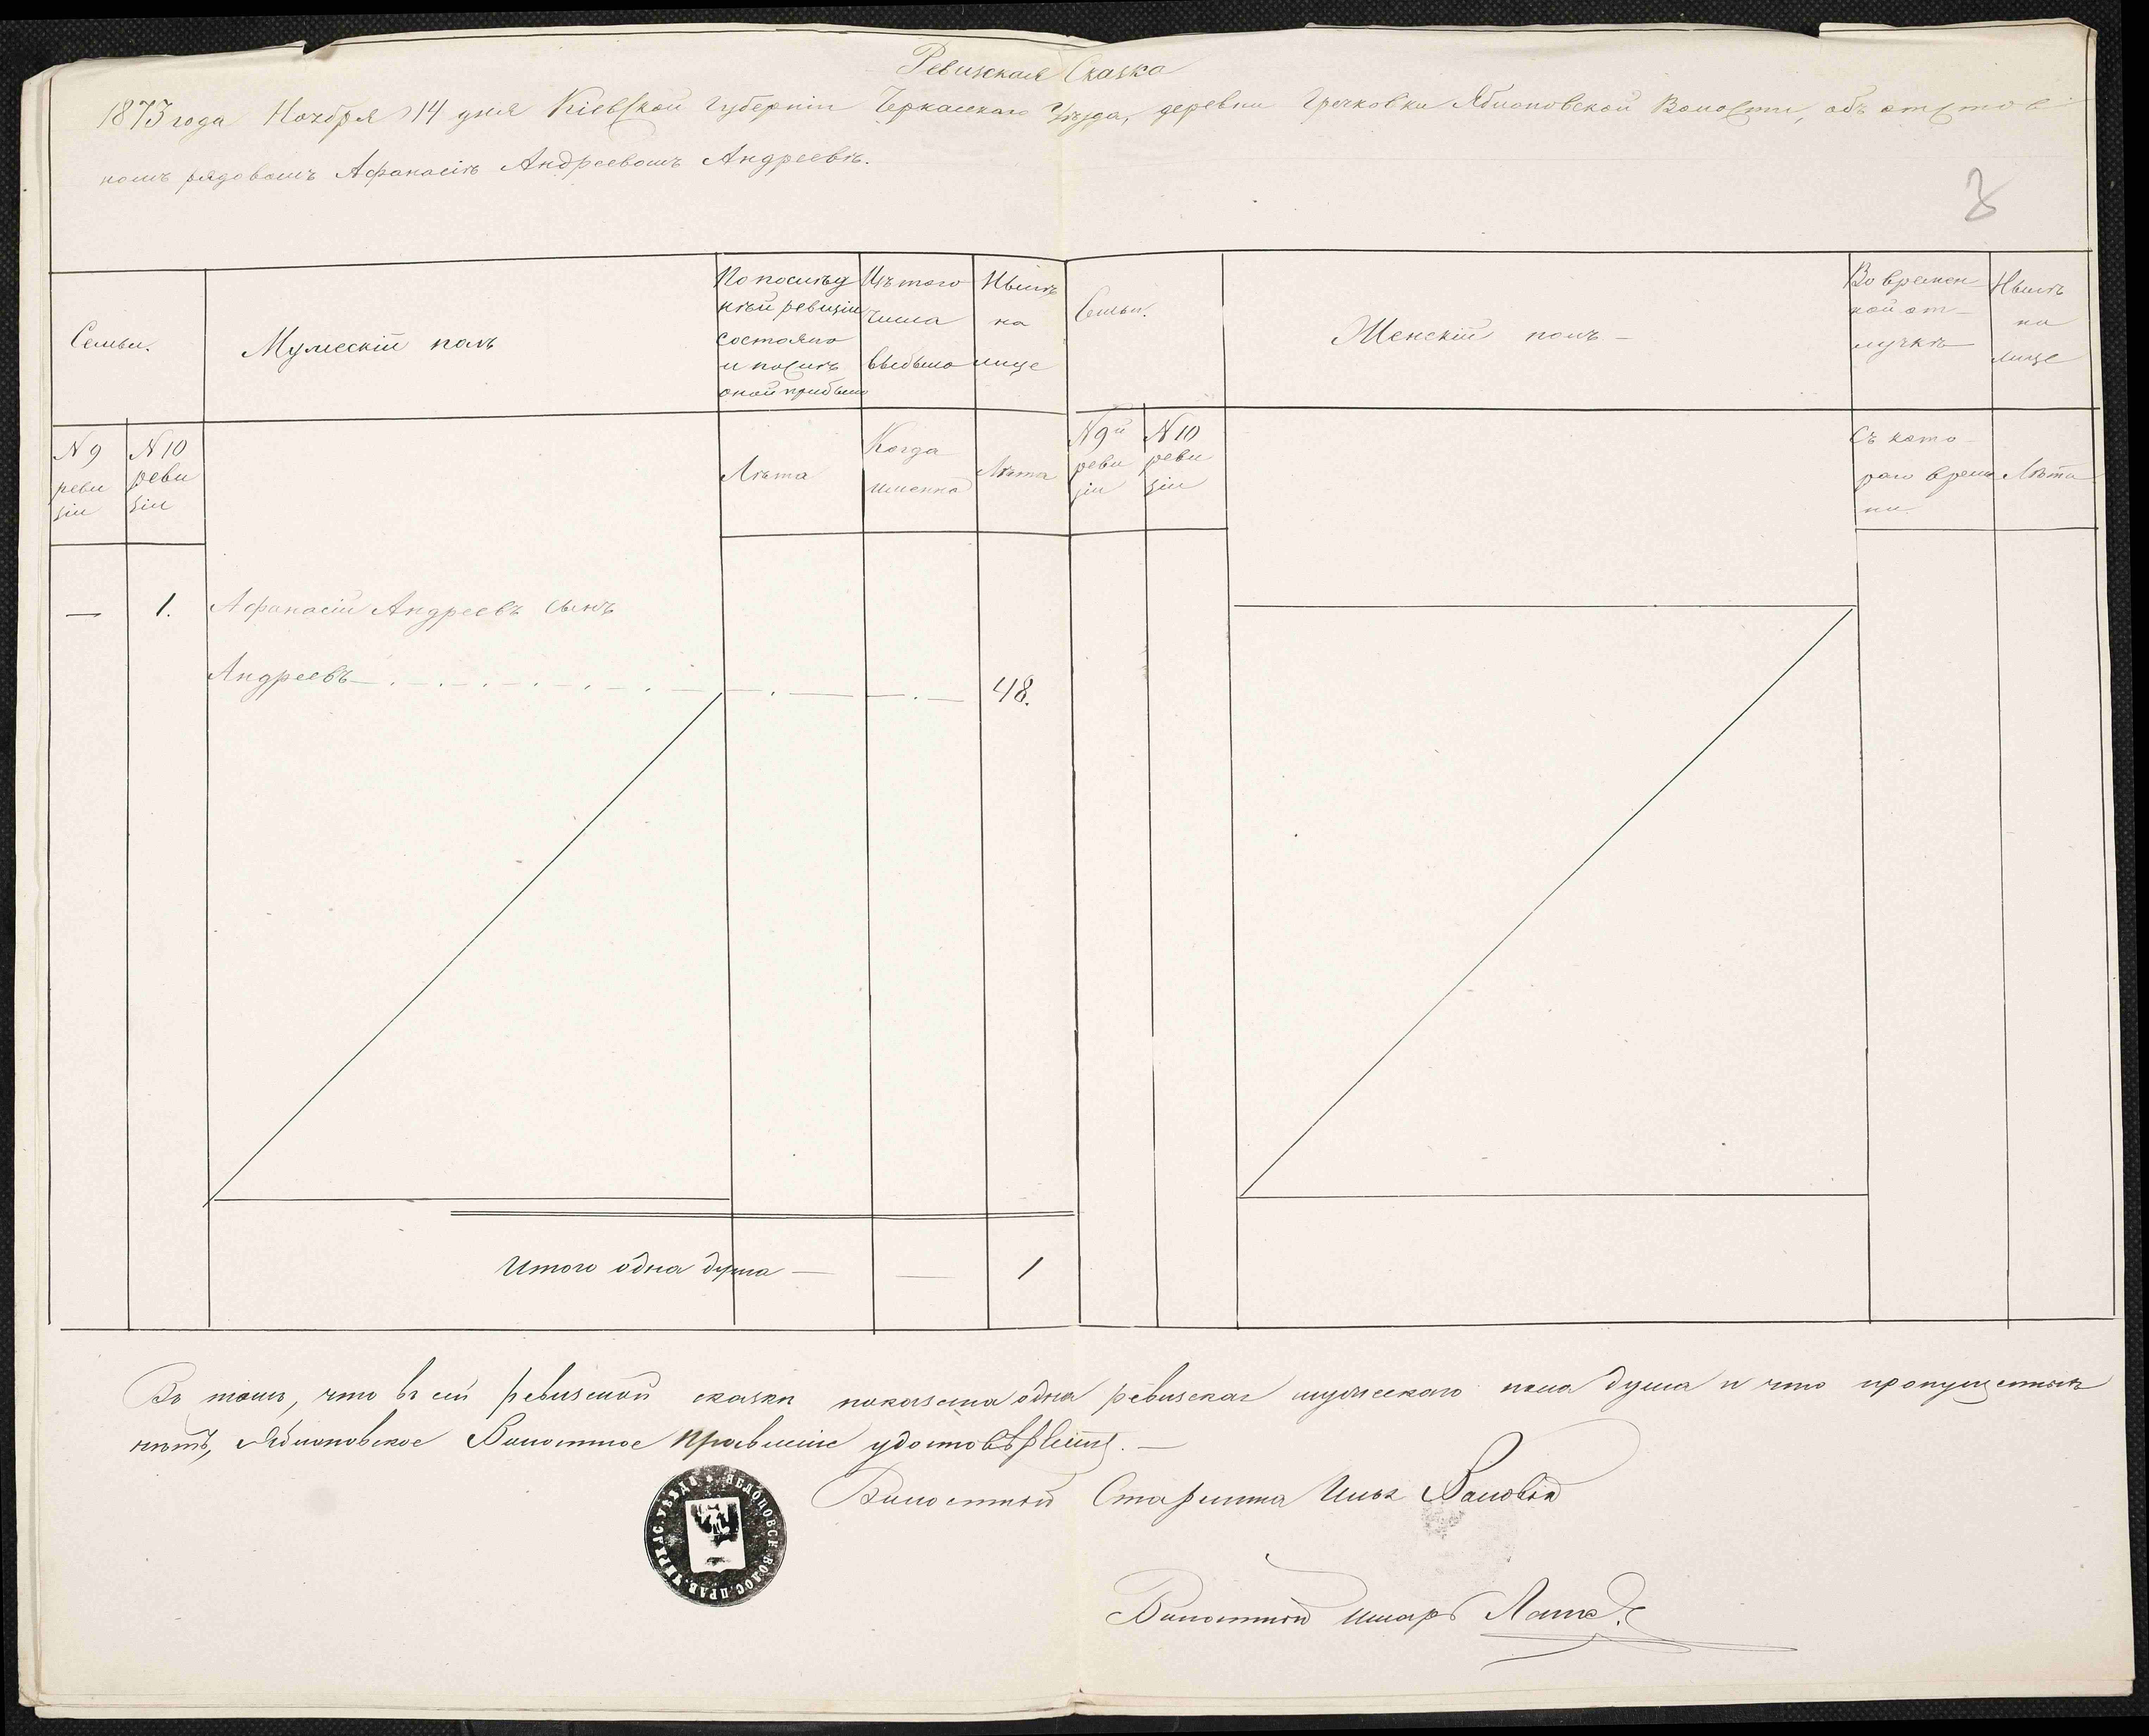 Ревизская Сказка
1873 года Ноября 14 дня Кіевской губерніи Черкасскаго Уѣзда, деревни Гречковки Яблоновской Волости, объ отстав
номъ рядовомъ Афанасіѣ Андреевомъ Андреевѣ.
8
Семьи.
Мужескій полъ
По послѣд
ней ревизіи
состояло
и послѣ
оной прибыло
Изъ того
числа
выбыло
Нынѣ
на
лице
Семьи.
Женскій полъ —
Во времен
ной от
лучкѣ
Нынѣ
на
лице
N 9
реви
зіи
N 10
реви
зіи
Лѣта
Когда
именно
Лѣта
N 9й
реви
зіи
N 10
реви
зіи
Съ кото
раго време
ни
Лѣта
— 1. Афанасій Андреевъ сынъ
Андреевъ 48.
Итого одна душа — — 1
Въ томъ, что въ сей ревизской сказки показана одна ревизская мужескаго пола душа и что пропущенныхъ
нѣтъ, Яблоновское Волостное Правленіе удостовѣряетъ. —
Волостной Старшина Илья
Волостной писарь
ЯБЛОНОВСК. ВОЛОС. ПРАВ. ЧЕРКАС. УѢЗДА